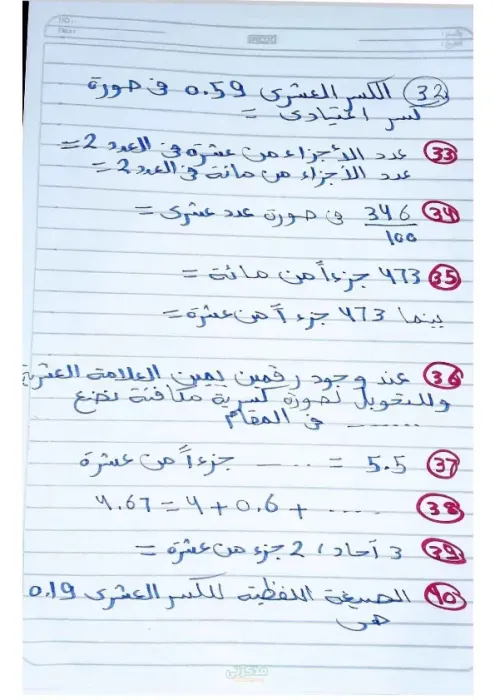 32 الكسر العشرى 0.59 فى صورة
كسر اعتيادى =
33 عدد الأجزاء من عشرة فى العدد 2 =
عدد الأجزاء من مائة فى العدد 2 =
34 346/100 فى صورة عدد عشرى =
35 473 جزءاً من مائة =
بينما 473 جزءاً من عشرة =
36 عند وجود رقمين يمين العلامة العشرية
وللتحويل لصورة كسرية مكافئة نضع
...... فى المقام
37 5.5 = ...... جزءاً من عشرة
38 4.67 = 4 + 0.6 + ......
39 3 آحاد ، 2 جزء من عشرة =
40 الصيغة اللفظية للكسر العشرى 0.19
هى